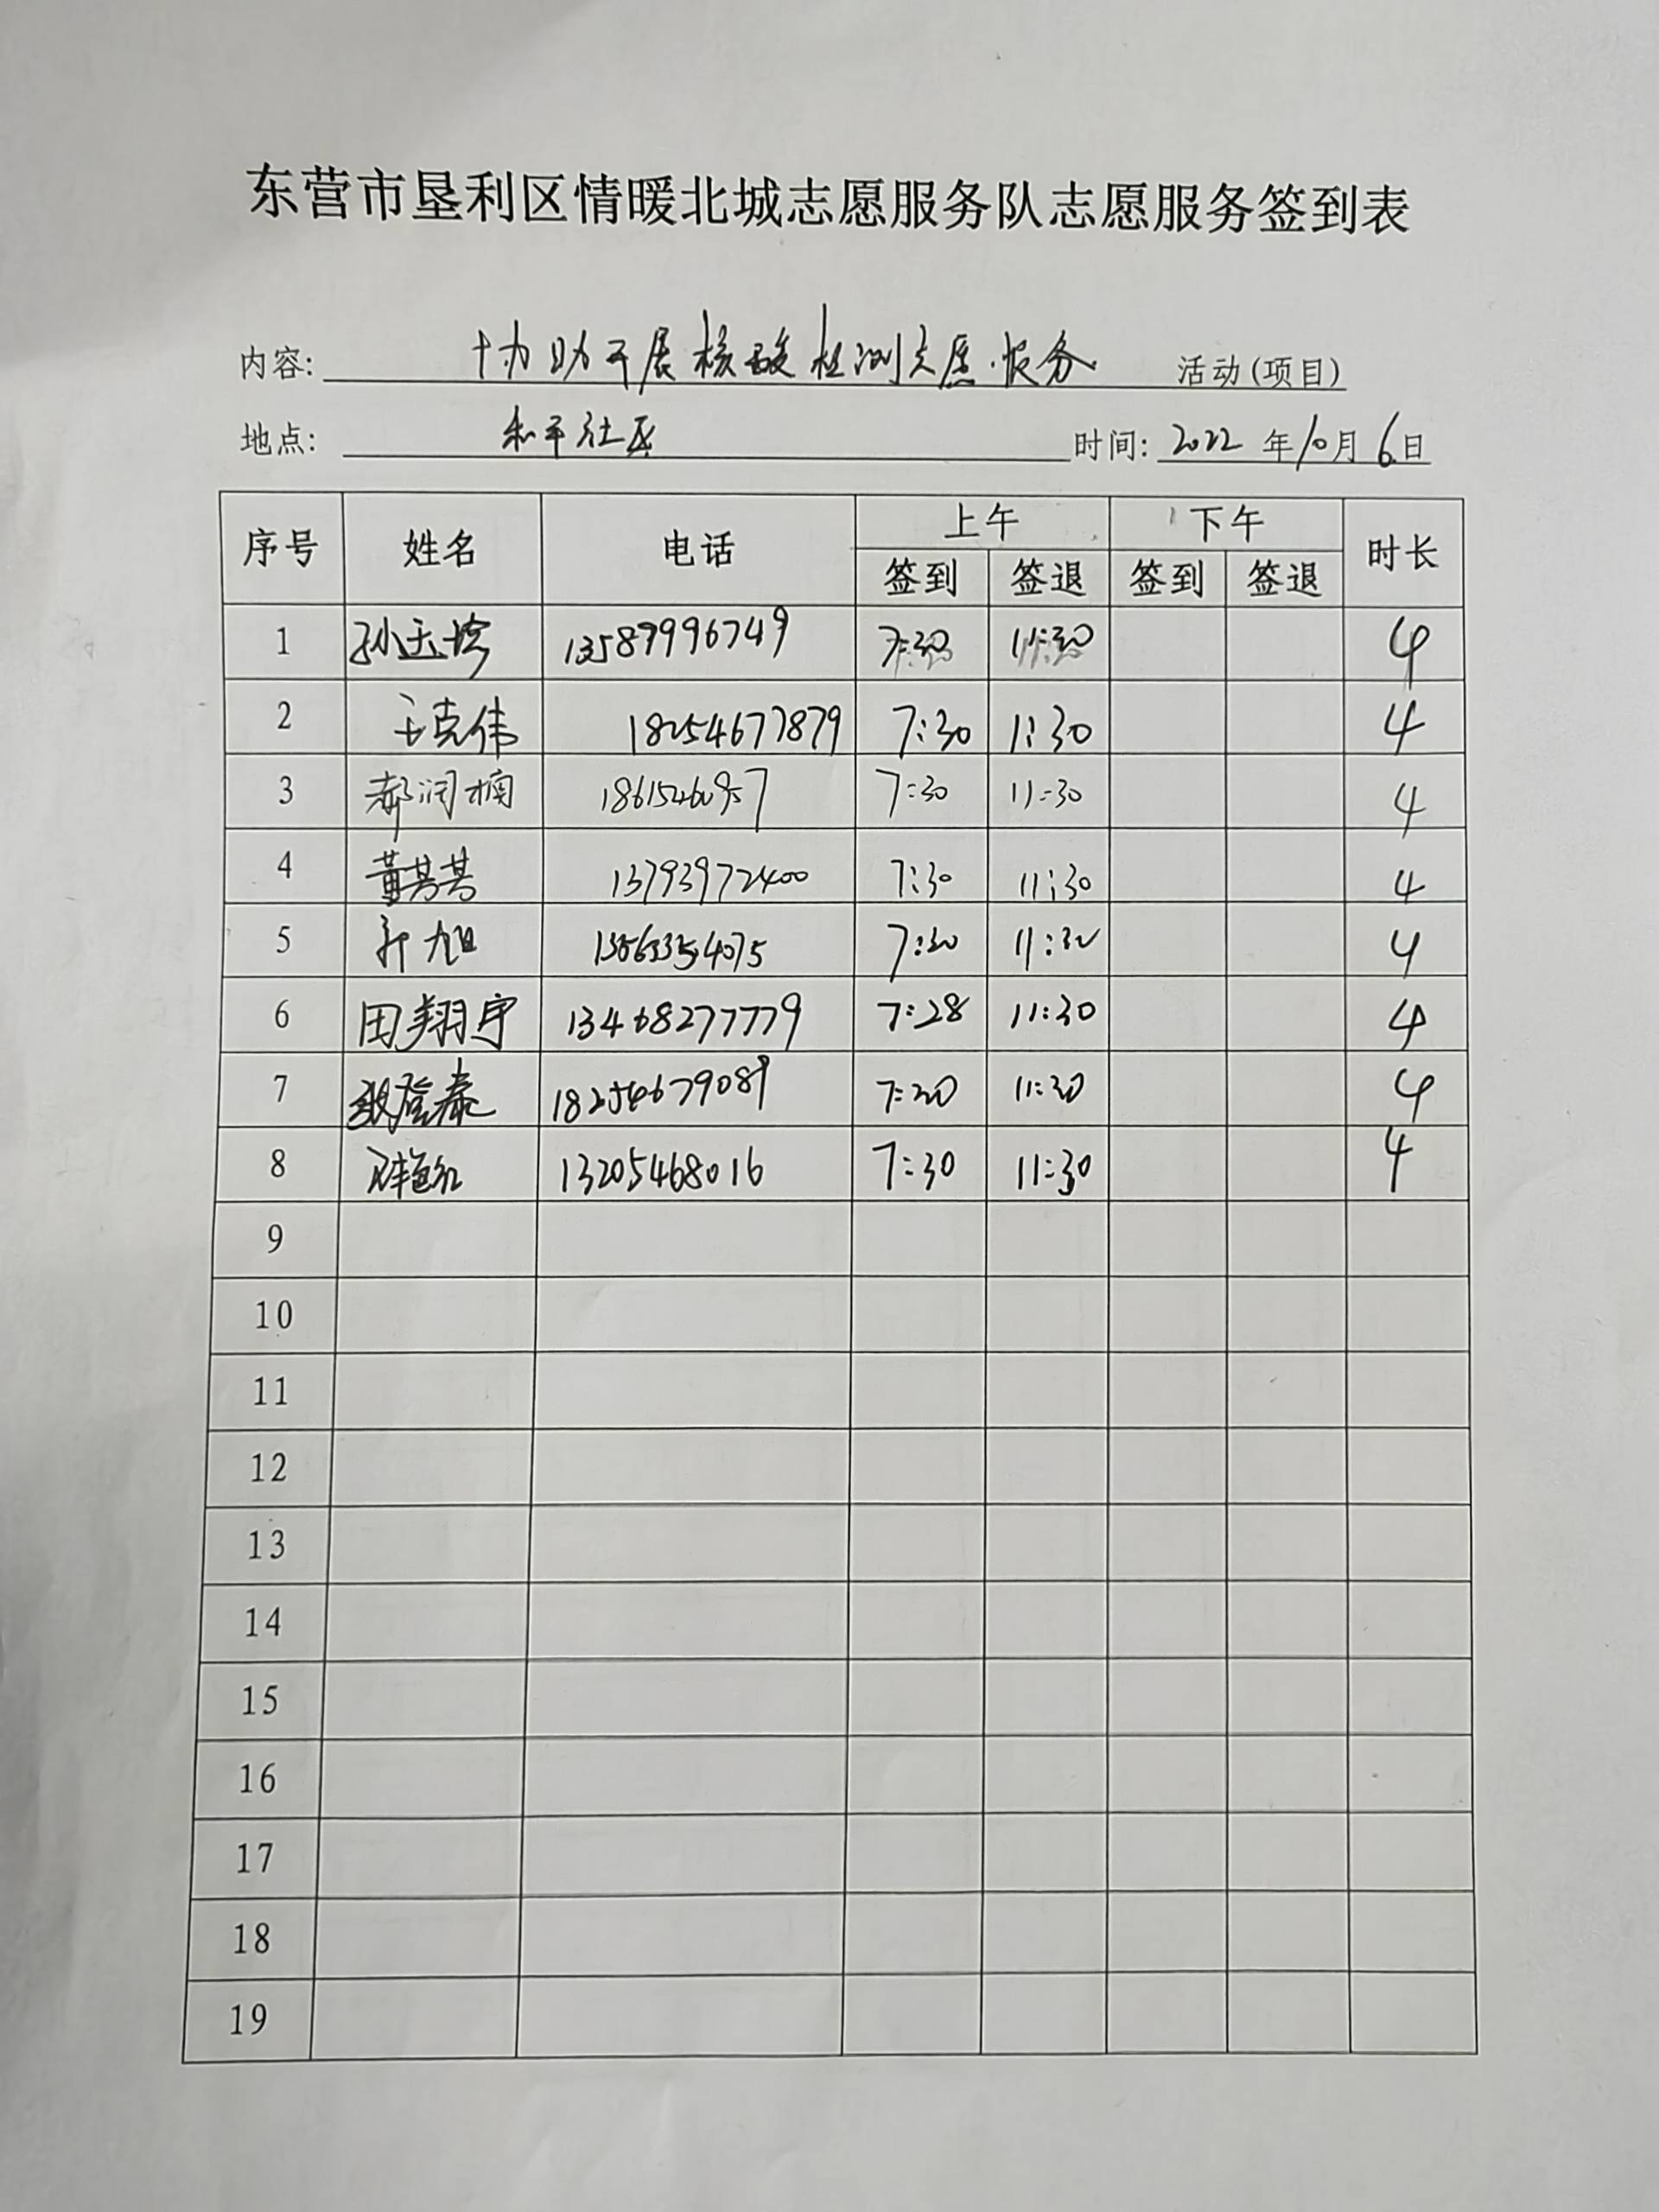 东营市垦利区情暖北城志愿服务队志愿服务签到表
内容: 协助开展核酸检测志愿服务 活动(项目)
地点: 和平社区 时间: 2022 年 10 月 6 日
序号 姓名 电话 上午 下午 时长
签到 签退 签到 签退
1 孙玉珍 13589996749 7:30 11:30 4
2 王克伟 18254677879 7:30 11:30 4
3 郝润楠 7:30 11:30 4
4 董芳芳 13793972400 7:30 11:30 4
5 旭 7:30 11:30 4
6 田翔宇 13468277779 7:28 11:30 4
7 18254679089 7:30 11:30 4
8 13205468016 7:30 11:30 4
9
10
11
12
13
14
15
16
17
18
19